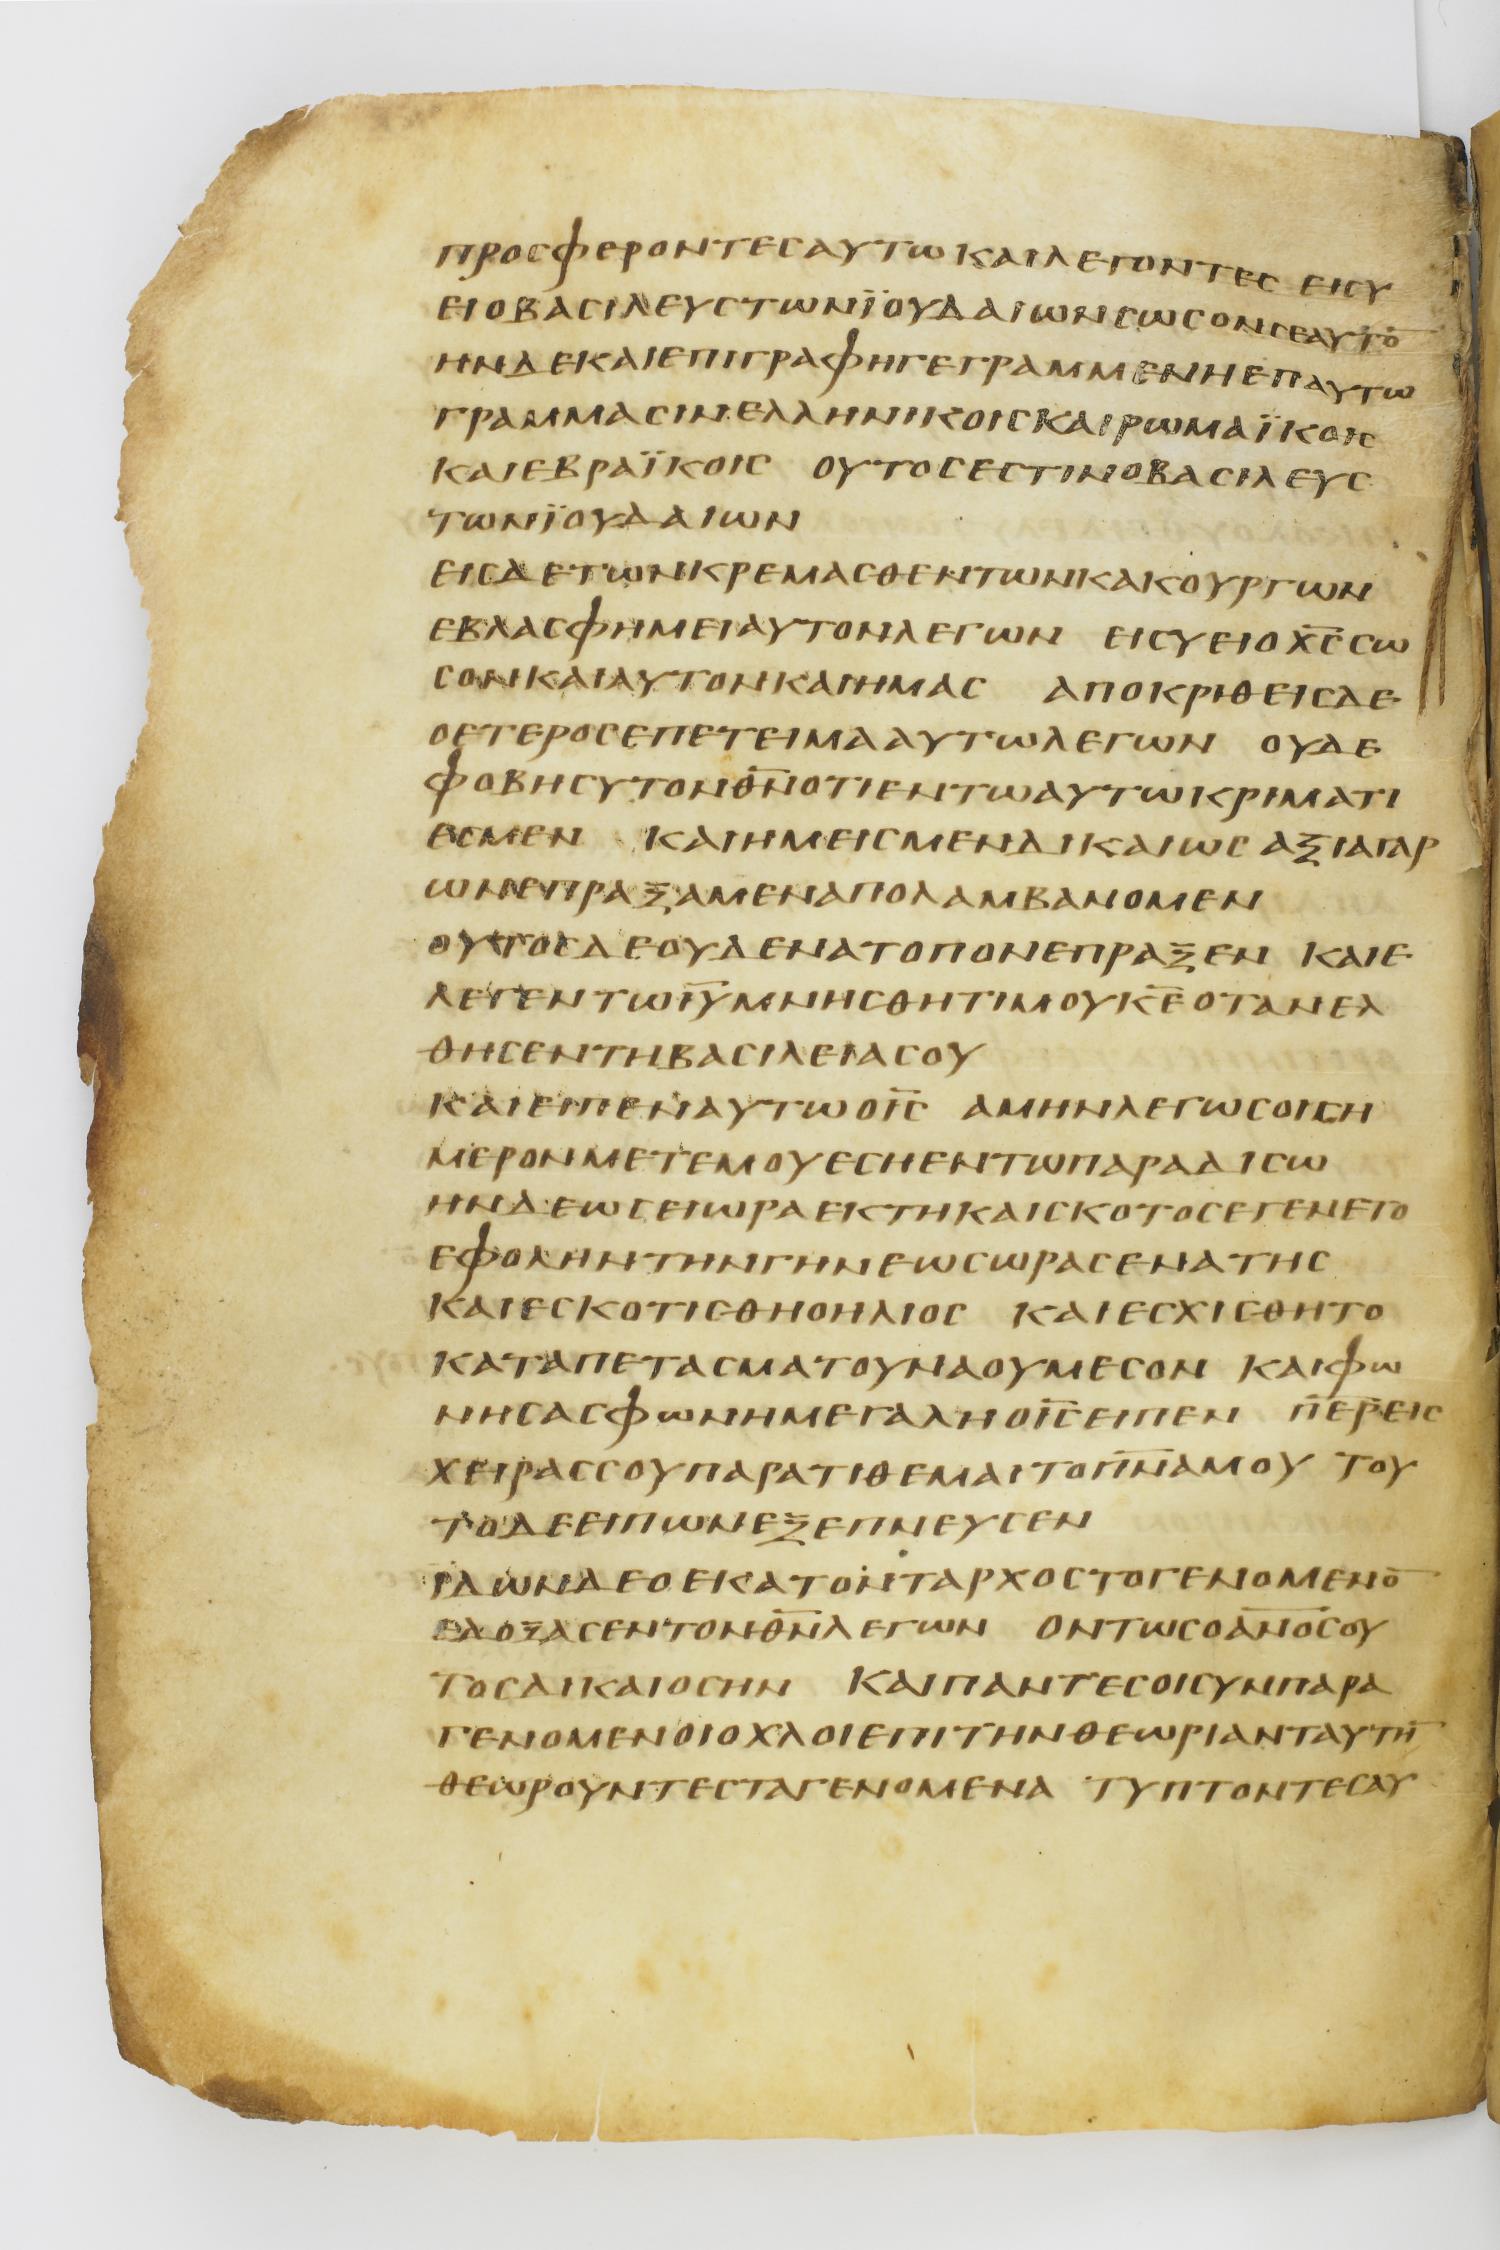 ΠΡΟСΦΕΡΟΝΤΕСΑΥΤΩΚΑΙΛΕΓΟΝΤΕС ΕΙСΥ
ΕΙΟΒΑСΙΛΕΥСΤΩΝΪΟΥΔΑΙΩΝСΩСΟΝСΕΑΥΤΟ̅
ΗΝΔΕΚΑΙΕΠΙΓΡΑΦΗΓΕΓΡΑΜΜΕΝΗΕΠΑΥΤΩ
ΓΡΑΜΜΑСΙΝΕΛΛΗΝΙΚΟΙСΚΑΙΡΩΜΑΪΚΟΙС
ΚΑΙΕΒΡΑΪΚΟΙС ΟΥΤΟСΕСΤΙΝΟΒΑСΙΛΕΥС
ΤΩΝΪΟΥΔΑΙΩΝ
ΕΙСΔΕΤΩΝΚΡΕΜΑСΘΕΝΤΩΝΚΑΚΟΥΡΓΩΝ
ΕΒΛΑСΦΗΜΕΙΑΥΤΟΝΛΕΓΩΝ ΕΙСΥΕΙΟΧ̅С̅СΩ
СΟΝΚΑΙΑΥΤΟΝΚΑΙΗΜΑС ΑΠΟΚΡΙΘΕΙСΔΕ
ΟΕΤΕΡΟСΕΠΕΤΕΙΜΑΑΥΤΩΛΕΓΩΝ ΟΥΔΕ
ΦΟΒΗСΥΤΟΝΘ̅Ν̅ΟΤΙΕΝΤΩΑΥΤΩΚΡΙΜΑΤΙ
ΕСΜΕΝ ΚΑΙΗΜΕΙСΜΕΝΔΙΚΑΙΩС ΑΞΙΑΓΑΡ
ΩΝΕΠΡΑΞΑΜΕΝΑΠΟΛΑΜΒΑΝΟΜΕΝ
ΟΥΤΟСΔΕΟΥΔΕΝΑΤΟΠΟΝΕΠΡΑΞΕΝ ΚΑΙΕ
ΛΕΓΕΝΤΩΙ̅Υ̅ΜΝΗСΘΗΤΙΜΟΥΚ̅Ε̅ΟΤΑΝΕΛ
ΘΗСΕΝΤΗΒΑСΙΛΕΙΑСΟΥ
ΚΑΙΕΙΠΕΝΑΥΤΩΟΙ̅С̅ ΑΜΗΝΛΕΓΩСΟΙСΗ
ΜΕΡΟΝΜΕΤΕΜΟΥΕСΗΕΝΤΩΠΑΡΑΔΙСΩ
ΗΝΔΕΩСΕΙΩΡΑΕΚΤΗΚΑΙСΚΟΤΟСΕΓΕΝΕΤΟ
ΕΦΟΛΗΝΤΗΝΓΗΝΕΩСΩΡΑСΕΝΑΤΗС
ΚΑΙΕСΚΟΤΙСΘΗΟΗΛΙΟС ΚΑΙΕСΧΙСΘΗΤΟ
ΚΑΤΑΠΕΤΑСΜΑΤΟΥΝΑΟΥΜΕСΟΝ ΚΑΙΦΩ
ΝΗСΑСΦΩΝΗΜΕΓΑΛΗΟΙ̅С̅ΕΙΠΕΝ Π̅Ε̅Ρ̅ΕΙС
ΧΕΙΡΑССΟΥΠΑΡΑΤΙΘΕΜΑΙΤΟΠ̅Ν̅Α̅ΜΟΥ ΤΟΥ
ΤΟΔΕΕΙΠΩΝΕΞΕΠΝΕΥСΕΝ
ΪΔΩΝΔΕΟΕΚΑΤΟΝΤΑΡΧΟСΤΟΓΕΝΟΜΕΝΟ̅
ΕΔΟΞΑСΕΝΤΟΝΘ̅Ν̅ΛΕΓΩΝ ΟΝΤΩСΟΑ̅Ν̅Ο̅С̅ΟΥ
ΤΟСΔΙΚΑΙΟСΗΝ ΚΑΙΠΑΝΤΕСΟΙСΥΝΠΑΡΑ
ΓΕΝΟΜΕΝΟΙΟΧΛΟΙΕΠΙΤΗΝΘΕΩΡΙΑΝΤΑΥΤΗ̅
ΘΕΩΡΟΥΝΤΕСΤΑΓΕΝΟΜΕΝΑ ΤΥΠΤΟΝΤΕСΑΥ